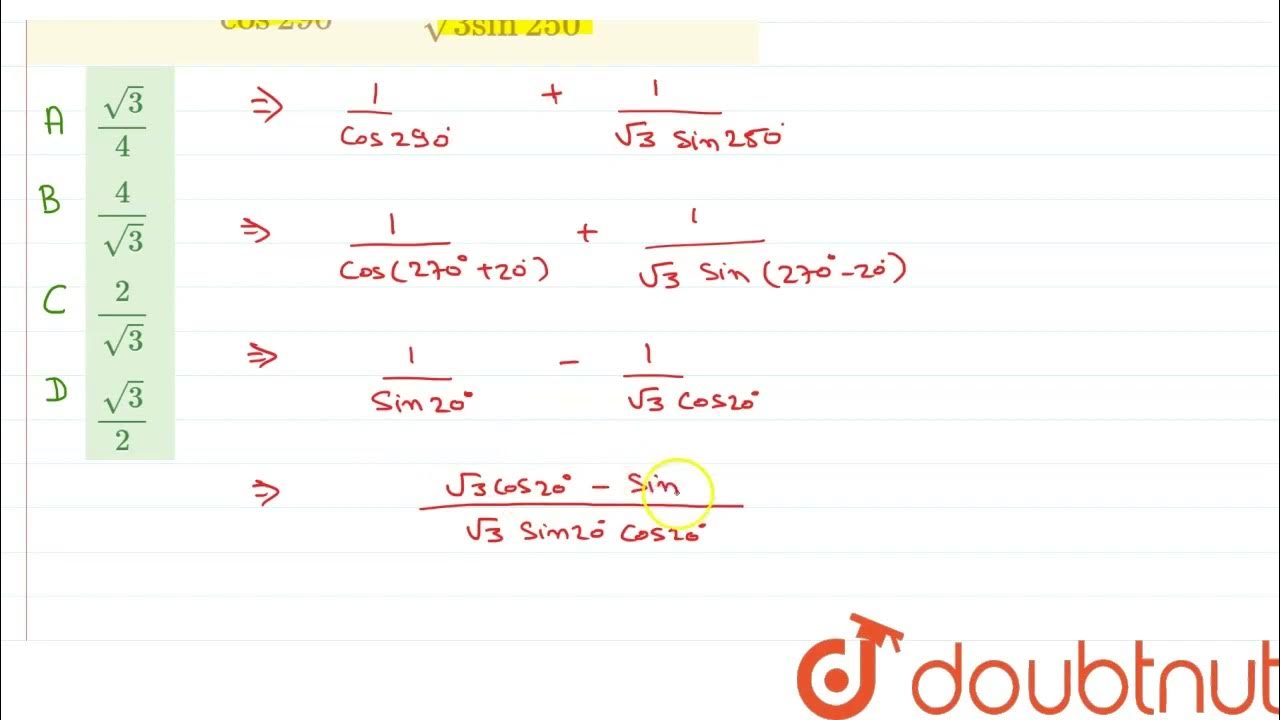 cos 290 √3sin 250
A √3/4
⇒ 1/cos 290° + 1/√3 sin 250°
B 4/√3
⇒ 1/cos(270° + 20°) + 1/√3 sin (270° - 20°)
C 2/√3
⇒ 1/sin 20° - 1/√3 cos 20°
D √3/2
⇒ √3 cos 20° - sin/√3 sin 20° cos 20°
doubtnut